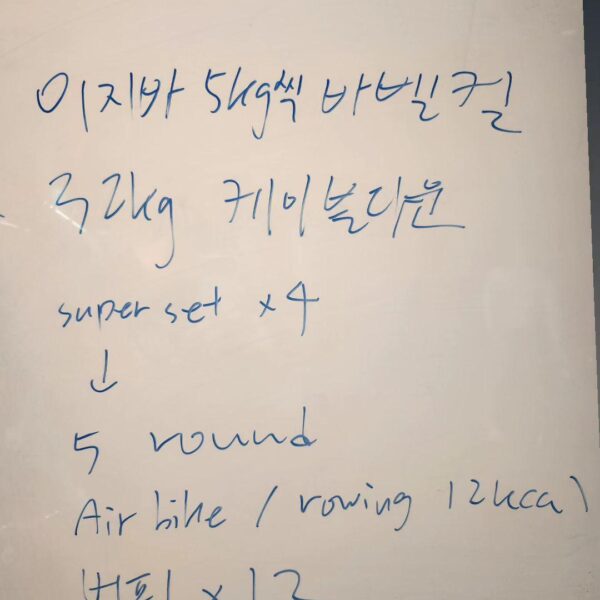 이지바 5kg씩 바벨컬
32kg 케이블다운
super set x4
↓
5 round
Air bike / rowing 12kcal
버피 x 12